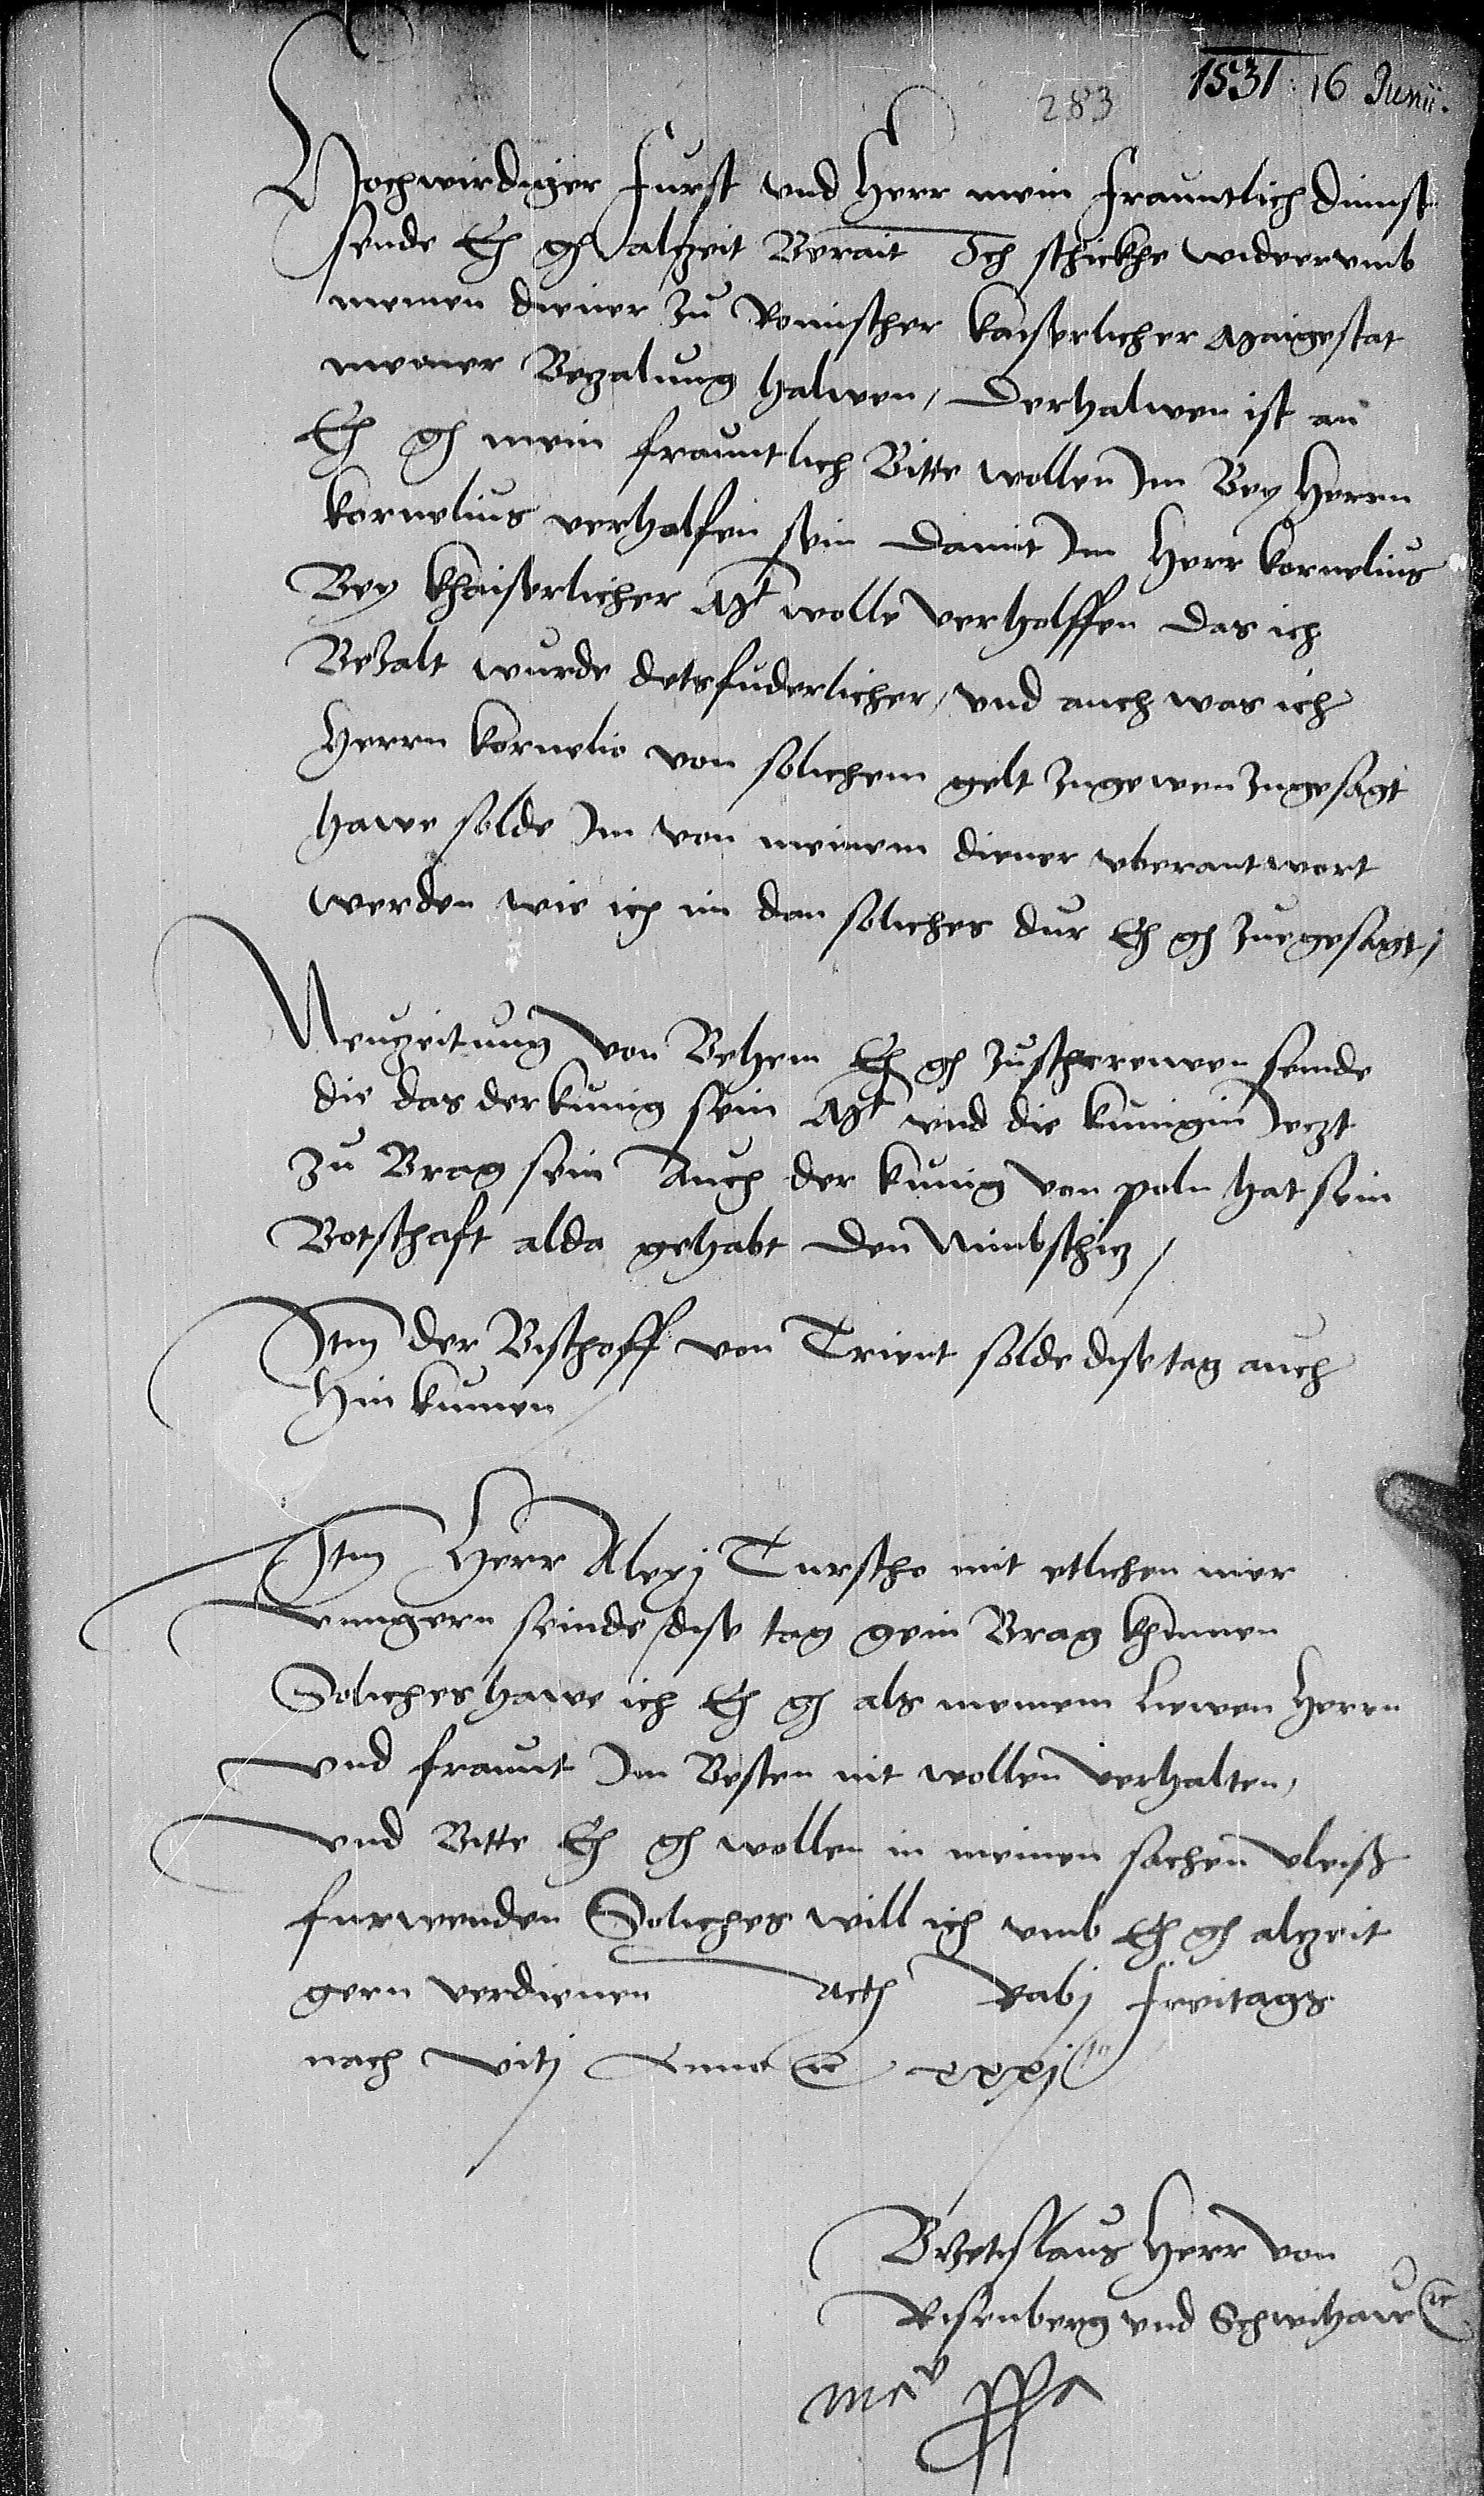 1531 : 16 Junii.
283
Hochwirdiger Furst vnd Herr mein frauntlich dinnst
sende E g alzeit Berait Ich schickhe widerumb
meinen diener zu Romischer kaiserlicher Maiyestat
meiner Bezalung halwen, Derhalwen ist an
E g mein frauntlich Bitte wollen Im Bey Herrn
kornelius verholfen sein damit Im Herr kornelius
Bey khaiserlicher Mt wolle verholffen das ich
Bezalt wurde dets fuderlicher, vnd auch was ich
Herrn kornelio von solichem gelt zugewen zugesagt
hawe solde Im von meinem diener vberantwort
werden wie ich im dan soliches dur E g zuegesagt,
Neuzeitung von Behem E g zuschreiwen seinde
die das der kunig sein Mt vnd die kunigin Jeczt
zu Brag sein Auch der kunig von poln hat sein
Botschaft alda gehabt den Nimbschicz,
Item der Bischoff von Trient solde dise tag auch
hin kumen
Item Herr Alexj Turscho mit etlichen mer
vnngern seinde dise tag gein Brag khumen
Soliches hawe ich E g als meinem liewen Herrn
vnd fraunt Im Besten nit wollen verhalten,
vnd Bitte E g wollen in meinen sachen vleiß
furwenden Soliches will ich vmb E g alzeit
gern verdienen Act Rabj freitags
nach vitj Anno etc xxxj
Brzetislaus Herr von
Risenberg vnd Schwihaw etc